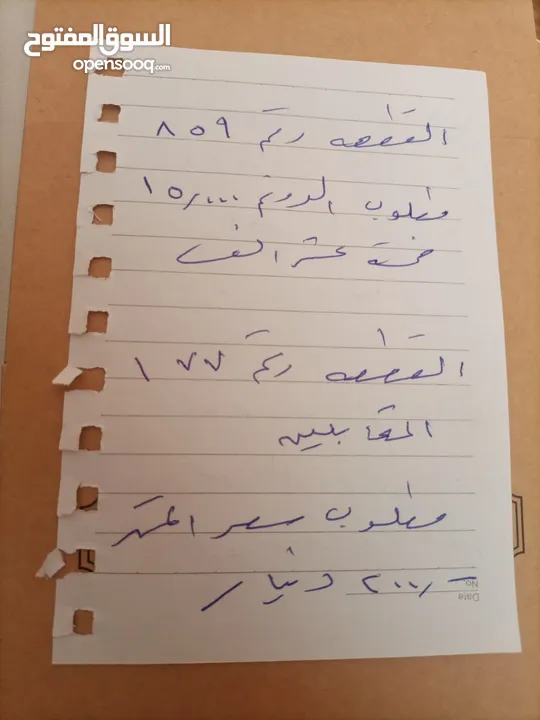 السوق المفتوح
opensooq.com
القطعه رقم ٨٥٩
مطلوب الدونم ١٥٫٠٠٠
خمسة عشر الف
القطعه رقم ١٧٧
المقابلين
مطلوب سعر المتر
٢٠٠٫- دينار
No.
Date